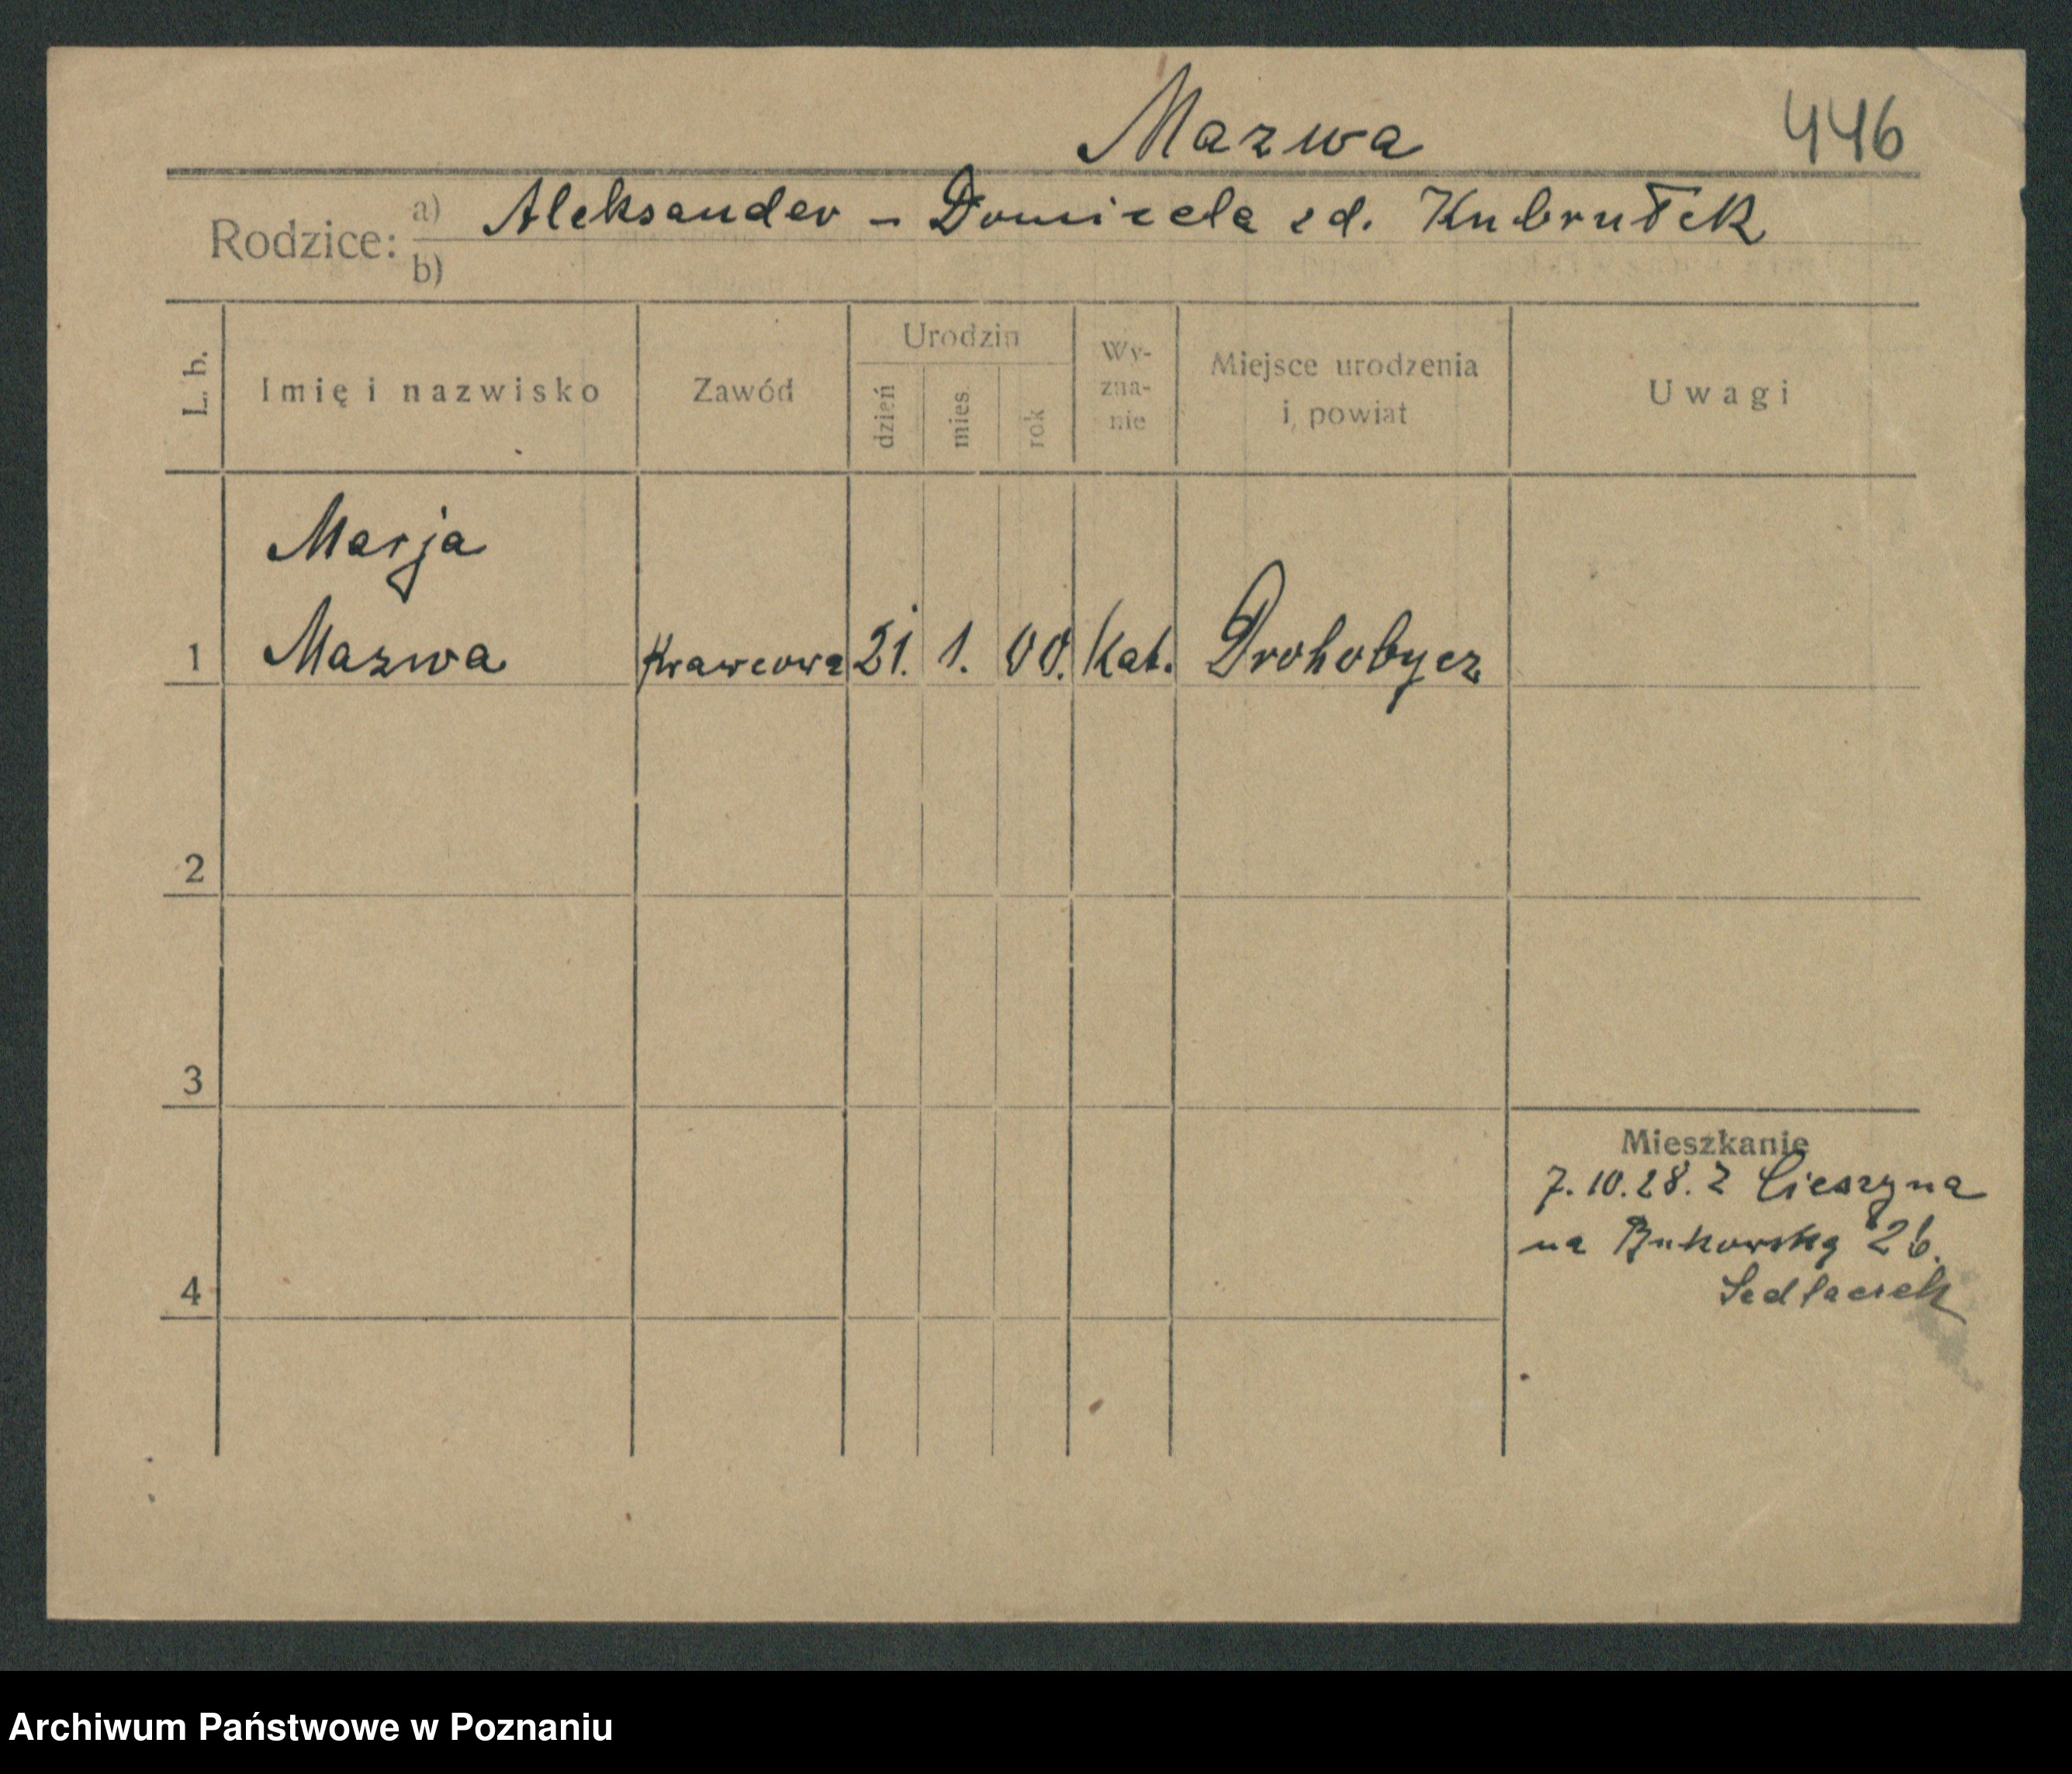 Mazwa 446
Rodzice: a) Aleksander - Domicela zd. Kubrułek
b)
L. b. Imię i nazwisko Zawód Urodzin dzień mies. rok Wy-zna-nie Miejsce urodzenia i powiat Uwagi
Marja
1 Mazwa Krawcowa 21. 1. 00. Kat. Drohobycz
2
3
Mieszkanie
7.10.28. z Cieszyna
na Bukowską 26.
4 Sedlaczek
Archiwum Państwowe w Poznaniu